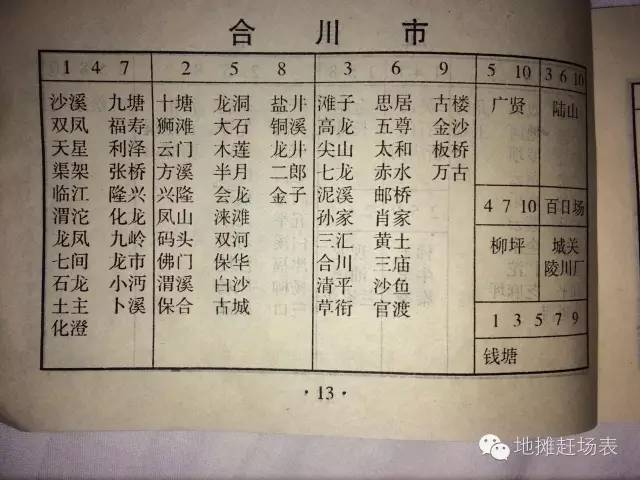 合川市
1 4 7
沙溪 九塘
双凤 福寿
天星 利泽
渠架 张桥
临江 隆兴
渭沱 化龙
龙凤 九岭
七间 龙市
石龙 小沔
土主 卜溪
化澄
2 5 8
十塘 龙洞 盐井
狮滩 大石 铜溪
云门 木莲 龙井
方溪 半月 二郎
兴隆 会龙 金子
凤山 涞滩
码头 双河
佛门 保华
渭溪 白沙
保合 古城
3 6 9
滩子 思居 古楼
高龙 五尊 金沙
尖山 太和 板桥
七龙 赤水 万古
泥溪 邮桥
孙家 肖家
三汇 黄土
合川 三庙
清平 沙鱼
草街 官渡
5 10
广贤
3 6 10
陆山
4 7 10
柳坪
百日场
城关
陵川厂
1 3 5 7 9
钱塘
·13·
地摊赶场表